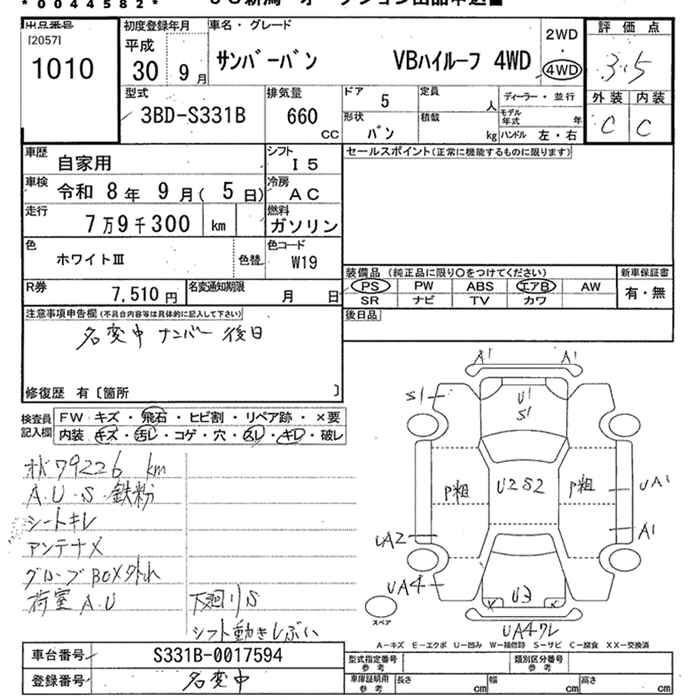 * 0044582 *
出品番号
[2057]
1010
初度登録年月
平成
30 9月
車名・グレード
サンバーバン VBハイルーフ 4WD
2WD
・
4WD
評価点
3.5
外装 内装
C C
型式
3BD-S331B
排気量
660
CC
ドア 5
定員 人
形状 バン
積載 kg
ディーラー・並行
モデル年式 年
ハンドル 左・右
車歴
自家用
シフト
I5
セールスポイント(正常に機能するものに限ります)
車検
令和 8年 9月( 5日)
冷房
AC
走行
7万9千300 km
燃料
ガソリン
色
ホワイトⅢ
色替
色コード
W19
装備品 (純正品に限り○をつけてください)
PS PW ABS エアB AW
SR ナビ TV カワ
新車保証書
有・無
R券
7,510円
名変通知期限
月 日
後日品
注意事項申告欄(不具合内容等は具体的に記入して下さい)
名変中 ナンバー後日
修復歴 有〔箇所 〕
検査員記入欄
FW キズ・飛石・ヒビ割・リペア跡・×要
内装 キズ・汚レ・コゲ・穴・凹レ・キレ・破レ
オド79226 km
A.U.S 鉄粉
シートキレ
アンテナX
グローブBOX外れ
荷室A.U 下廻りS
シフト動きしぶい
A1 A1
S1 U1
S1
P粗 U2S2 P粗 UA1
UA2 A1
UA4 U3
X X
スペア
UA4ワレ
A-キズ E-エクボ U-凹み W-補修跡 S-サビ C-腐食 XX-交換済
車台番号 S331B-0017594
型式指定番号 参考
類別区分番号 参考
登録番号 名変中
車庫証明用 参考
長さ cm 幅 cm 高さ cm